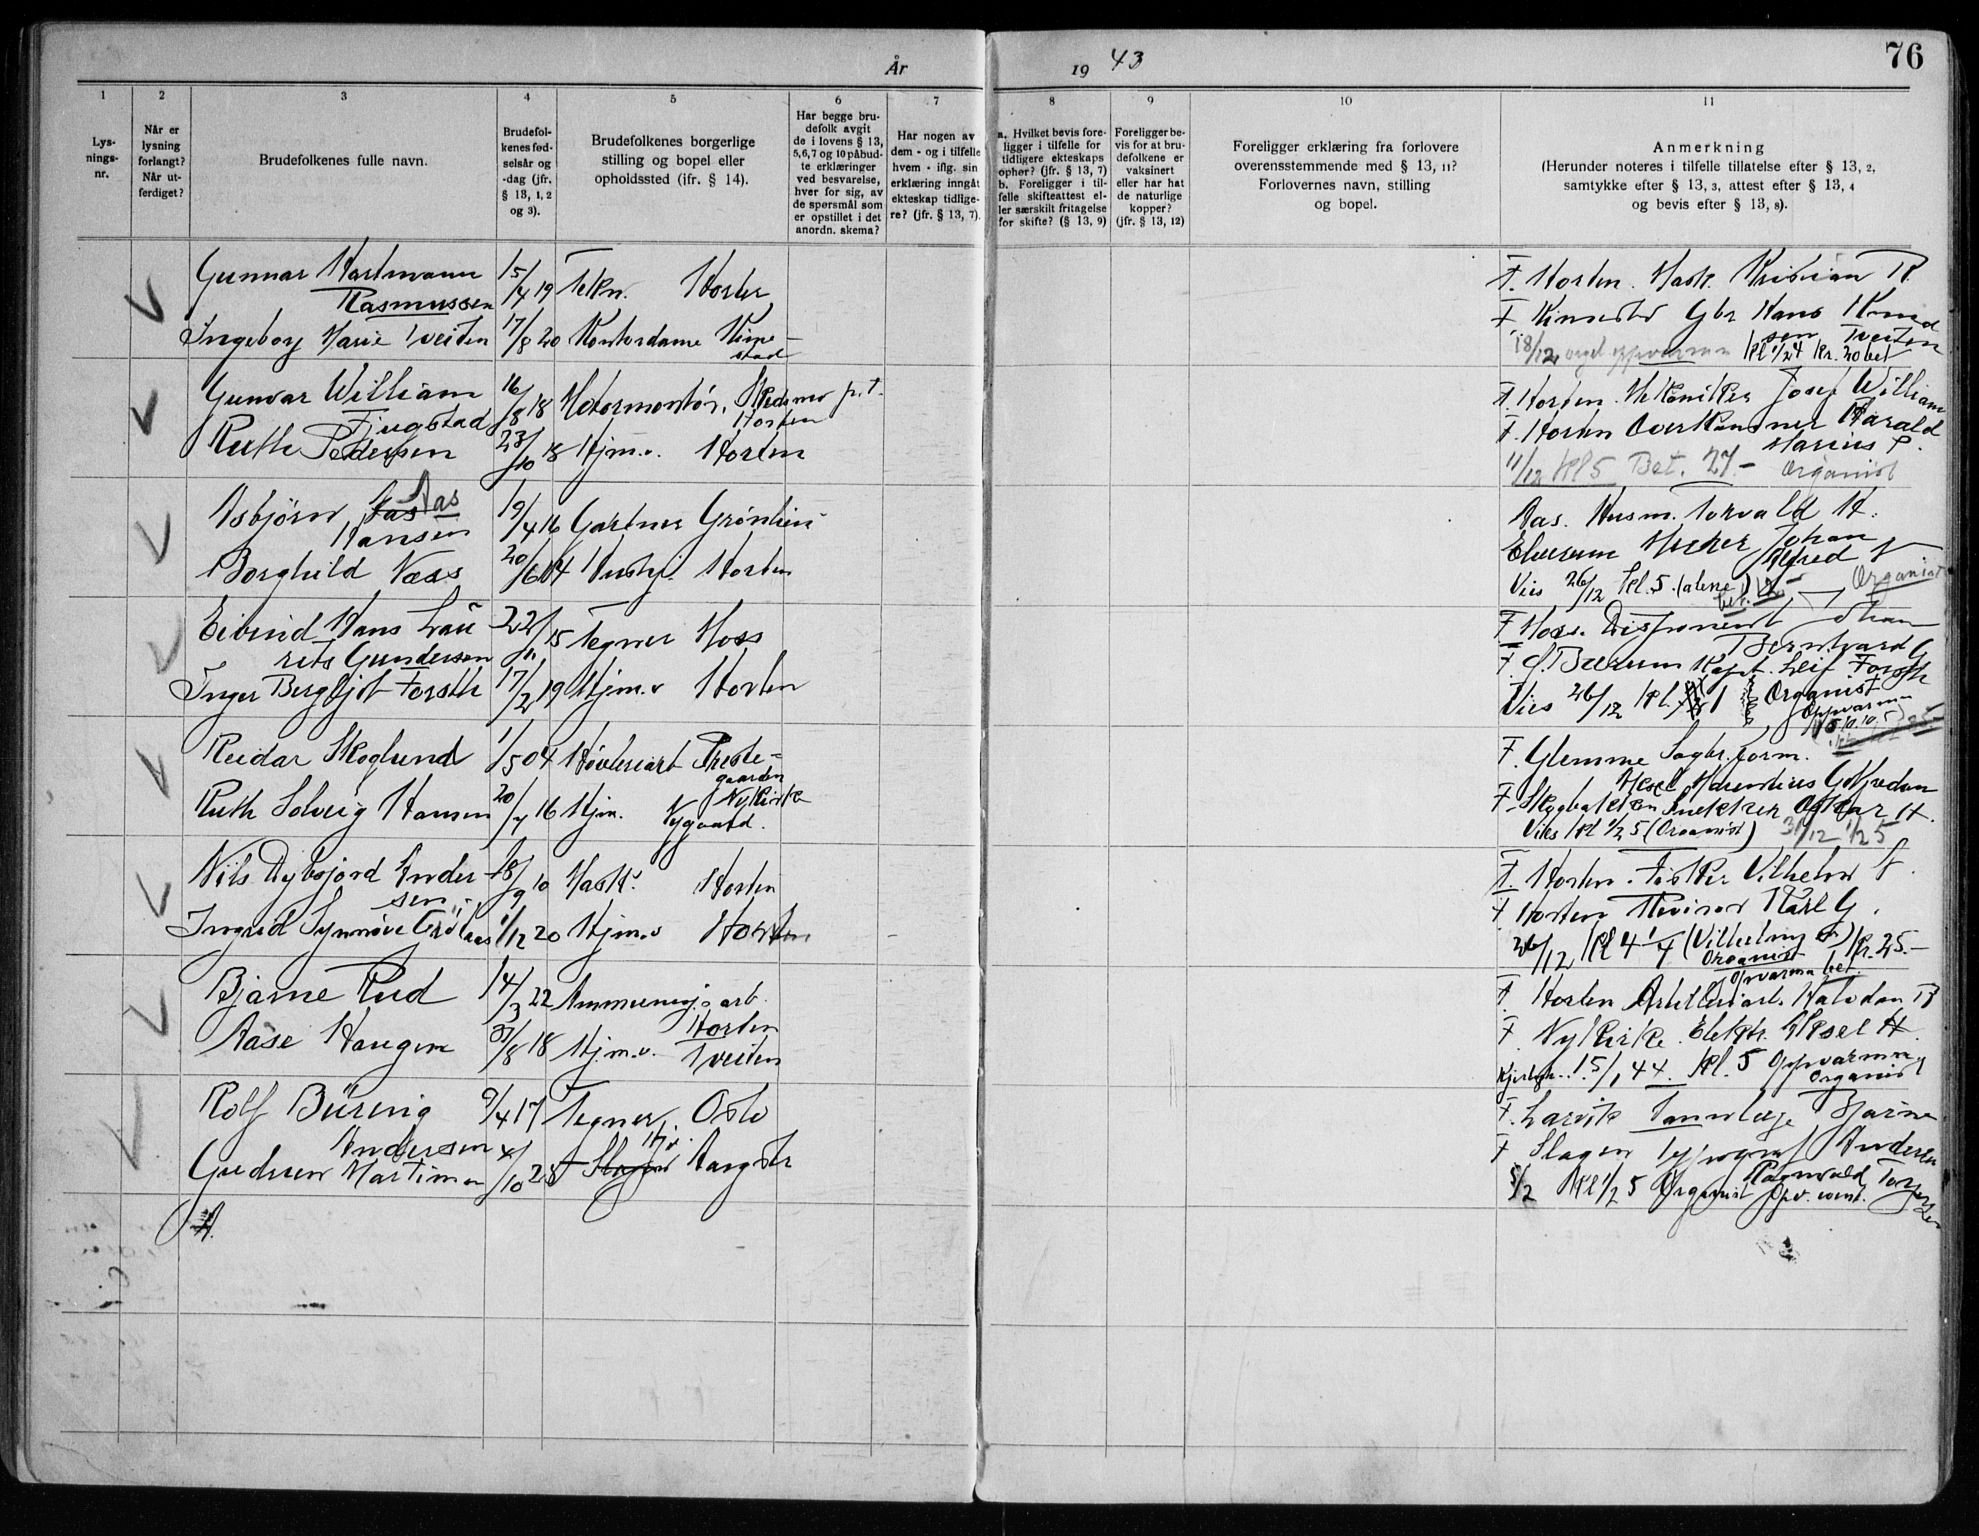 År 19 43
76
1 2 3 4 5 6 7 8 9 10 11
Lys-
nings-
nr.
Når er
lysning
forlangt?
Når ut-
ferdiget?
Brudefolkenes fulle navn.
Brudefol-
kenes fød-
selsår og
-dag (jfr.
§ 13, 1, 2
og 3).
Brudefolkenes borgerlige
stilling og bopel eller
opholdssted (ifr. § 14).
Har begge bru-
defolk avgit
de i lovens § 13,
5,6,7 og 10 påbud-
te erklæringer
ved besvarelse,
hver for sig, av
de spørsmål som
er opstillet i det
anordn. skema?
Har nogen av
dem - og i tilfelle
hvem - iflg. sin
erklæring inngåt
ekteskap tidlige-
re? (jfr. § 13, 7).
a. Hvilket bevis fore-
ligger i tilfelle for
tidligere ekteskaps
ophør? (jfr. § 13, 7)
b. Foreligger i til-
felle skifteattest el-
ler særskilt fritagelse
for skifte? (§ 13, 9)
Foreligger be-
vis for at bru-
defolkene er
vaksinert
eller har hat
de naturlige
kopper?
(jfr. § 13, 12)
Foreligger erklæring fra forlovere
overensstemmende med § 13, 11?
Forlovernes navn, stilling
og bopel.
Anmerkning
(Herunder noteres i tilfelle tillatelse efter § 13, 2,
samtykke efter § 13, 3, attest efter § 13, 4
og bevis efter § 13, 8).
Gunnar Hartmann 15/4 19 Tekn. Horten F. Horten. Mask. Kristian R
Rasmussen
Ingeborg Marie Tveiten 17/8 20 Kontordame Kime- F Kimestad Gbr Hans Knud
stad sen Tveiten
18/12 kl 1/2 4 kr. 20 bet
Gunvar William 16/8 18 Motormontør, Skedsmo p.t. F. Horten. Mekaniker Josef William
Fjugstad Horten
Ruth Pedersen 23/10 18 Hjm.v. Horten F. Horten Harald
Marius P.
11/12 kl 5 Bet. 27.- Organist
Asbjørn Aas 19/4 16 Gartner Aas. Husm. Torvald H.
Hansen
Borghild Næss 20/6 04 Horten Elverum Johan
Alfred N
Vies 26/12 kl. 5. (alene) Organist
Eivind Hans Lau 22/11 15 Tegner Moss F Moss. Disponent Johan
rits Gundersen Berntvard G
Inger Bergljot Forsth 17/2 19 Hjm.v Horten F. S. Bærum Kapt. Leif Forsth
Vies 26/12 kl. 1 Organist
Oppvarm
Reidar Skoglund 1/5 04 Høvleriarb Preste- F. Glemme Sagbr. form.
gaarden
Nykirke
Ruth Solveig Hansen 20/7 16 Hjm. Nygaard. F. Skogbakken Snekker Oskar H.
Vies kl 1/2 5 (Organist) 31/12 1/2 5
Nils Dybsjord Ander 18/9 10 Mask. Horten F. Horten. Fisker Vilhelm
sen
Ingrid Synnøve 1/12 20 Hjm.v Horten F Horten Revisor Karl G.
26/12 kl 4 1/4 kr. 25.-
Organist
Opvarm bet.
Bjarne Rud 14/3 22 Ammunisj. arb. F. Horten Halvdan R
Horten
Aase Haugen 31/8 18 Hjm.v. Tveiten F. Nykirke. Elektr. Aksel H.
15/1 44. kl. 5 Oppvarmn
Organist
Rolf Büring 9/4 17 Tegner, Oslo F. Larvik Tannlege Bjarne
Andersen Hv.
Gudrun Martinsen 4/10 28 Slagen Aargstr F Slagen typograf Andersen
Ragnvald Torgersen
5/2 kl 1/2 5 Organist Opv.